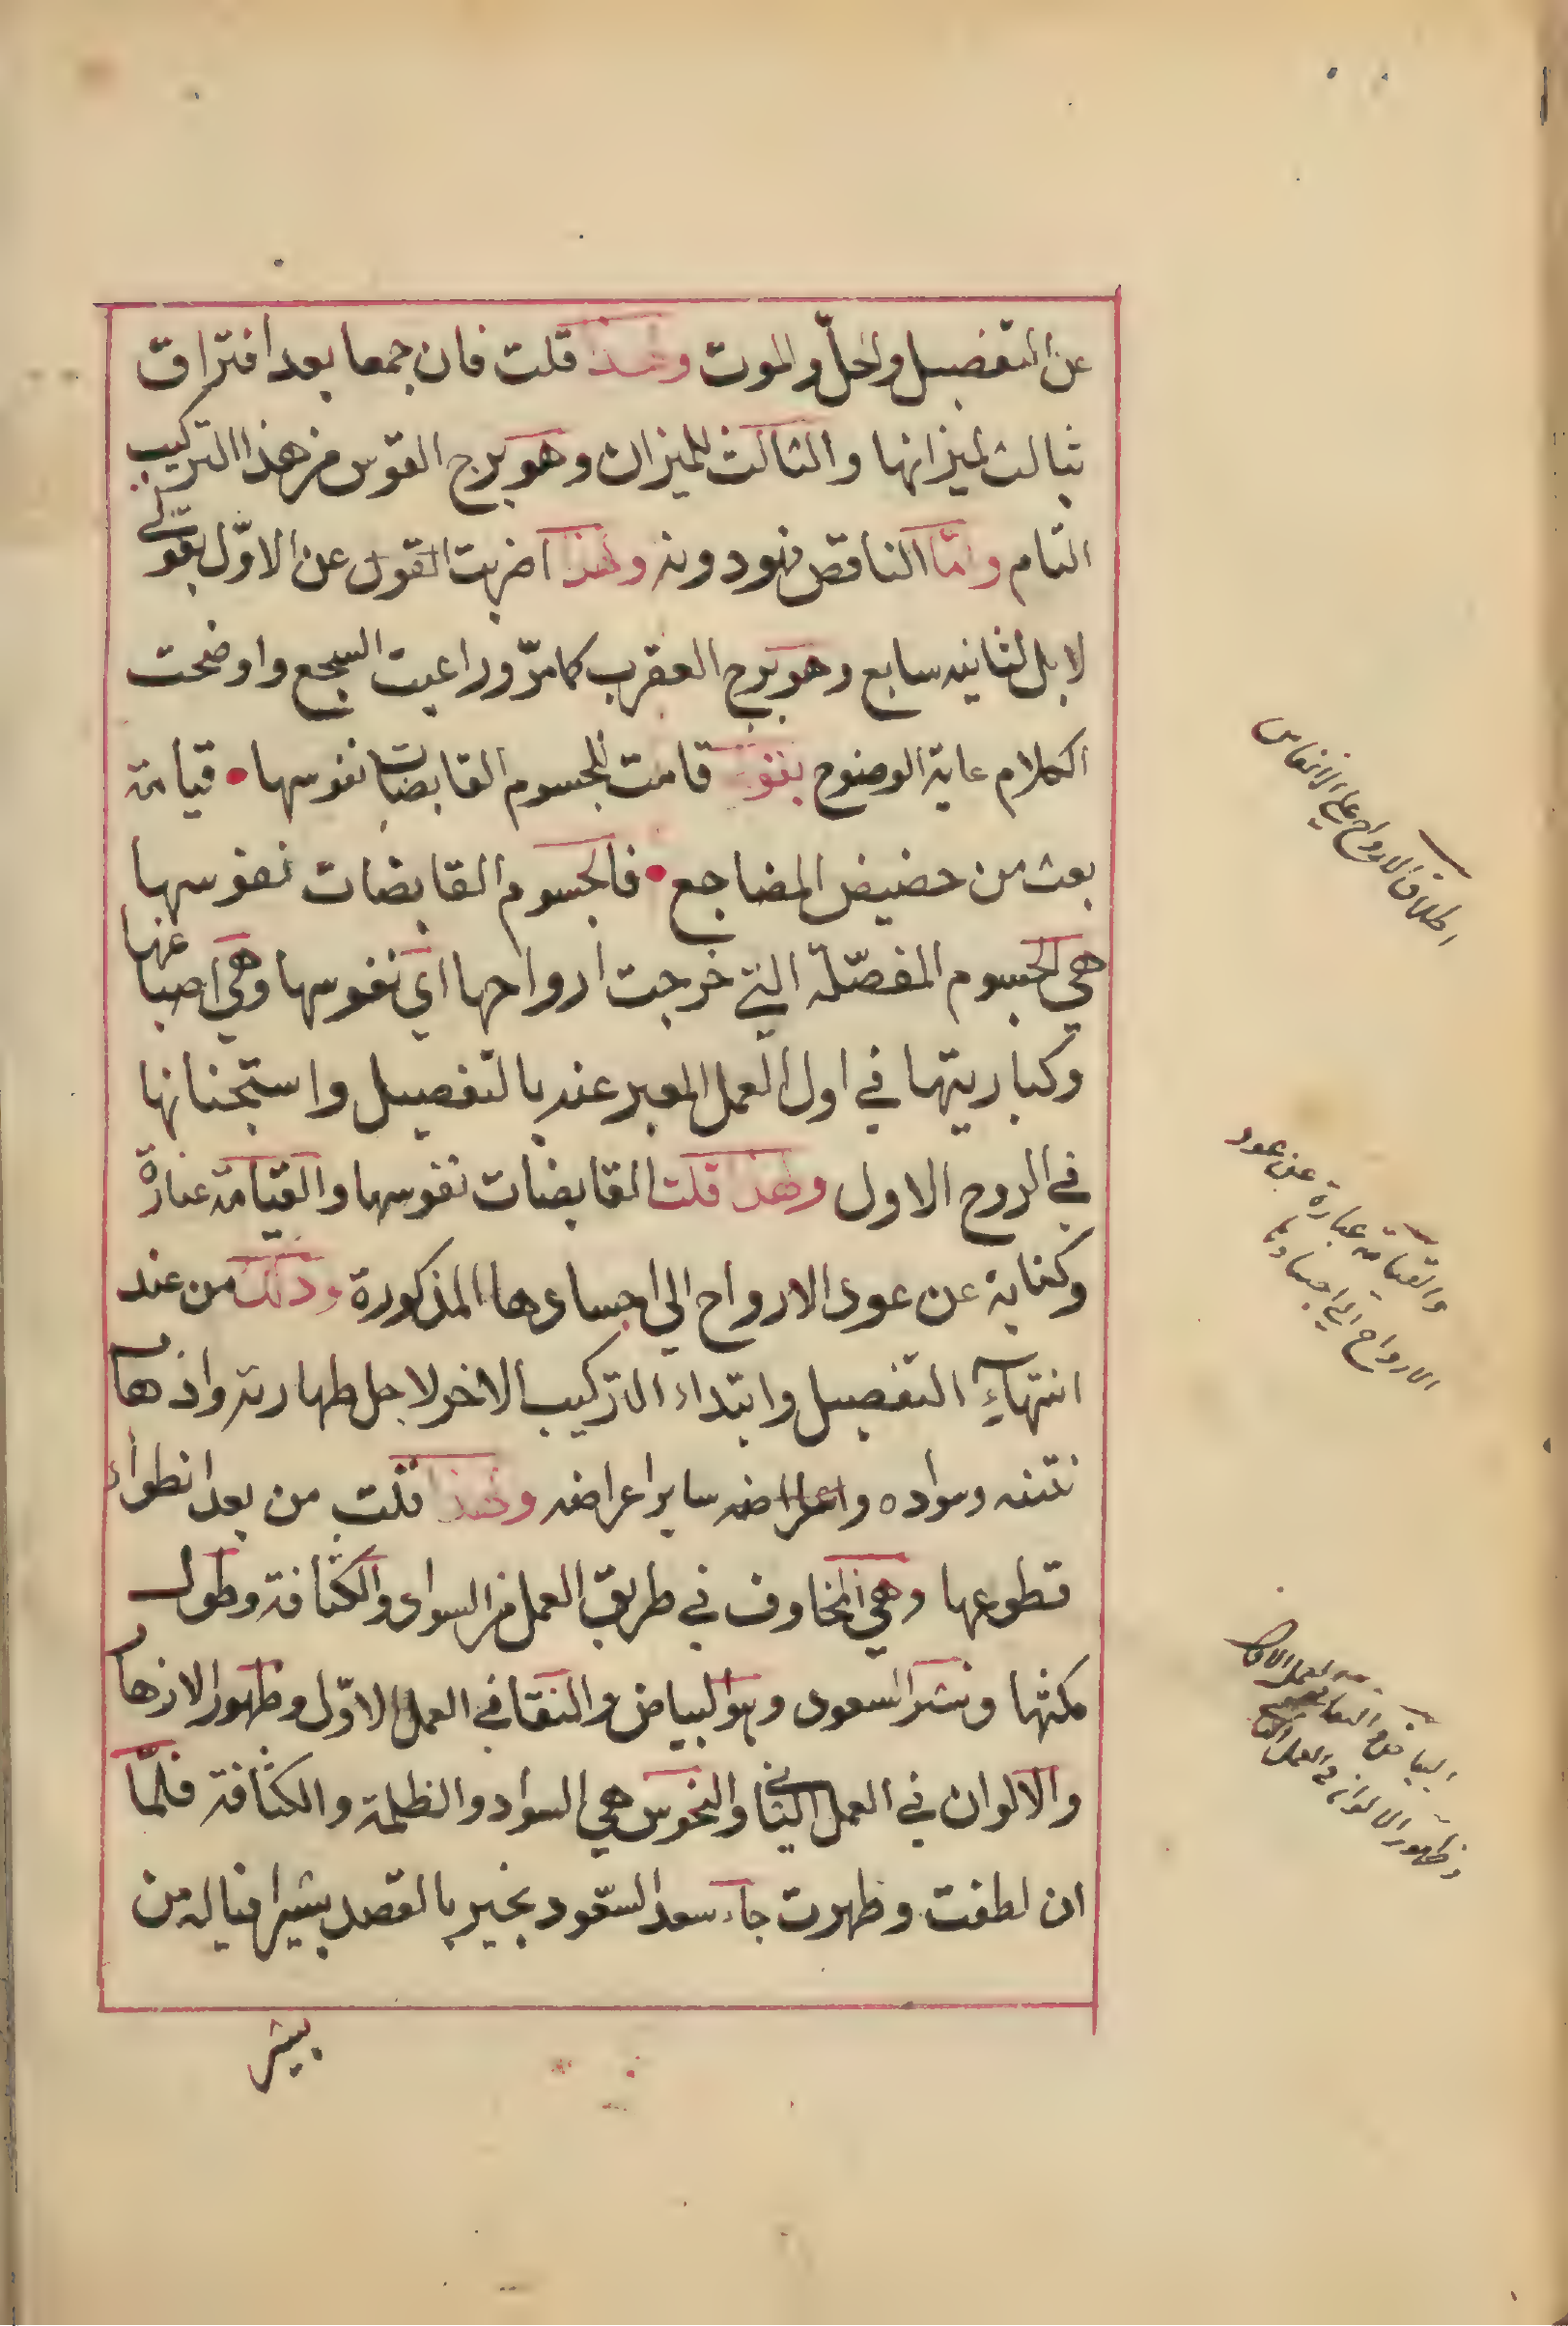 عن التفصيل والحلّ والموت ولهذا قلت فان جمعا بعد افتراق
ثبالث لميزانها والثالث للميزان وهو برج القوس من هذا التركيب
التام وامّا الناقص فهو دونه ولهذا اضربت القول عن الاوّل بقولي
لا بل لثانيه سابع وهو برج العقرب كما مرّ وراعيت السجع واوضحت
الكلام غاية الوضوح بقولي قامت للجسوم القابضات نفوسها • قيامة
بعث من حضيض المضاجع • فالجسوم القابضات نفوسها
هي الجسوم المفصّلة التي خرجت ارواحها اي نفوسها وهي اصباغها
وكباريتها في اول العمل المعبر عنه بالتفصيل واستجنانها
في الروح الاول ولهذا قلت القابضات نفوسها والقيامة عبارة
وكناية عن عود الارواح الى اجسادها المذكورة وذلك من عند
انتهاء التفصيل وابتداء التركيب الاخر لاجل طهارته واذهاب
نتنه وسواده واعراضه ساير اعراضه ولهذا قلت من بعد انطواء
قطوعها وهي المخاوف في طريق العمل من السواد والكثافة وطول
مكثها ونشر السعود وهو البياض والنقا في العمل الاوّل وظهور الازهار
والالوان في العمل الثاني والنحوس هي السواد والظلمة والكثافة فلمّا
ان لطفت وظهرت جاء سعد السعود بخير بالقصد بشيرا فياله من
بشير
اطلاق الارواح على الانفاس
والقيامة عبارة عن عود
الارواح الى اجسادها
البياض والنقا في العمل الاول
وظهور الالوان في العمل الثاني